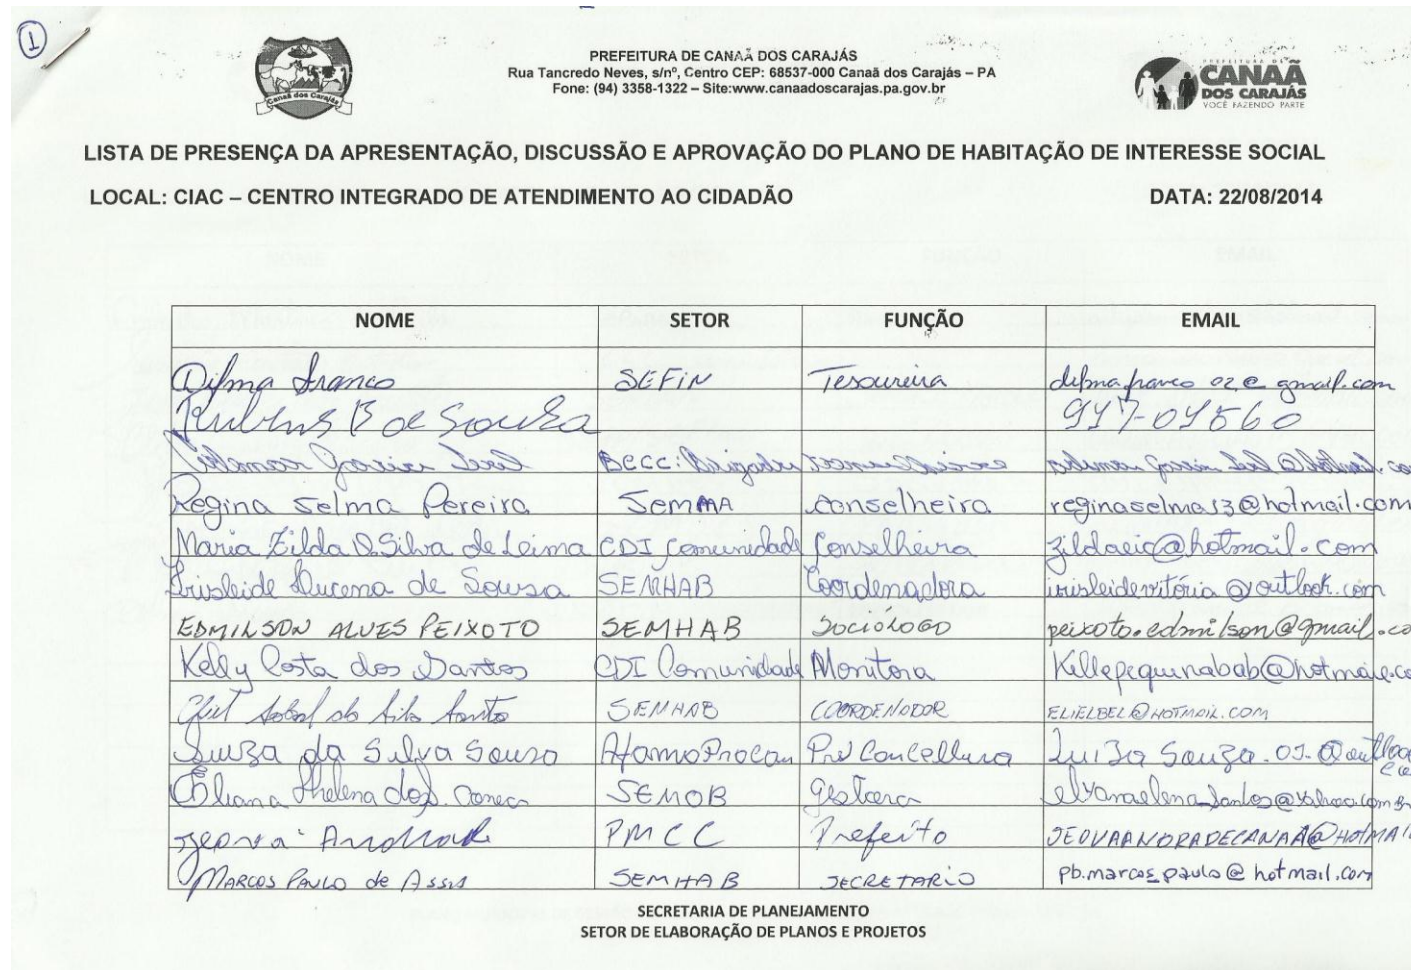 1
Canaã dos Carajás
PREFEITURA DE CANAÃ DOS CARAJÁS
Rua Tancredo Neves, s/nº, Centro CEP: 68537-000 Canaã dos Carajás – PA
Fone: (94) 3358-1322 – Site:www.canaadoscarajas.pa.gov.br
PREFEITURA DE
CANAÃ
DOS CARAJÁS
VOCÊ FAZENDO PARTE
LISTA DE PRESENÇA DA APRESENTAÇÃO, DISCUSSÃO E APROVAÇÃO DO PLANO DE HABITAÇÃO DE INTERESSE SOCIAL
LOCAL: CIAC – CENTRO INTEGRADO DE ATENDIMENTO AO CIDADÃO DATA: 22/08/2014
NOME SETOR FUNÇÃO EMAIL
Dilma Franco SEFIN Tesoureira dilmafranco02@gmail.com
Rubens B de Souza
Regina Selma Pereira SEMMA Conselheira reginaselma13@hotmail.com
Maria Zilda Silva de Leima CDI Comunidade Conselheira
Irisleide Lucena de Sousa SEMHAB Coordenadora irisleidevitória@outlook.com
EDMILSON ALVES PEIXOTO SEMHAB SOCIÓLOGO peixoto.edmilson@gmail.co
Kelly Costa dos Santos CDI Comunidade Monitora Killepequinabab@hotmail.co
SEMHAB COORDENADOR ELIELBEL@HOTMAIL.COM
Luiza da Silva Souza
SEMOB gestora
Jeová Andrade PMCC Prefeito JEOVAANDRADECANAA@HOTMAI
MARCOS PAULO de ASSIS SEMHAB SECRETARIO pb.marcos_paulo@hotmail.com
SECRETARIA DE PLANEJAMENTO
SETOR DE ELABORAÇÃO DE PLANOS E PROJETOS